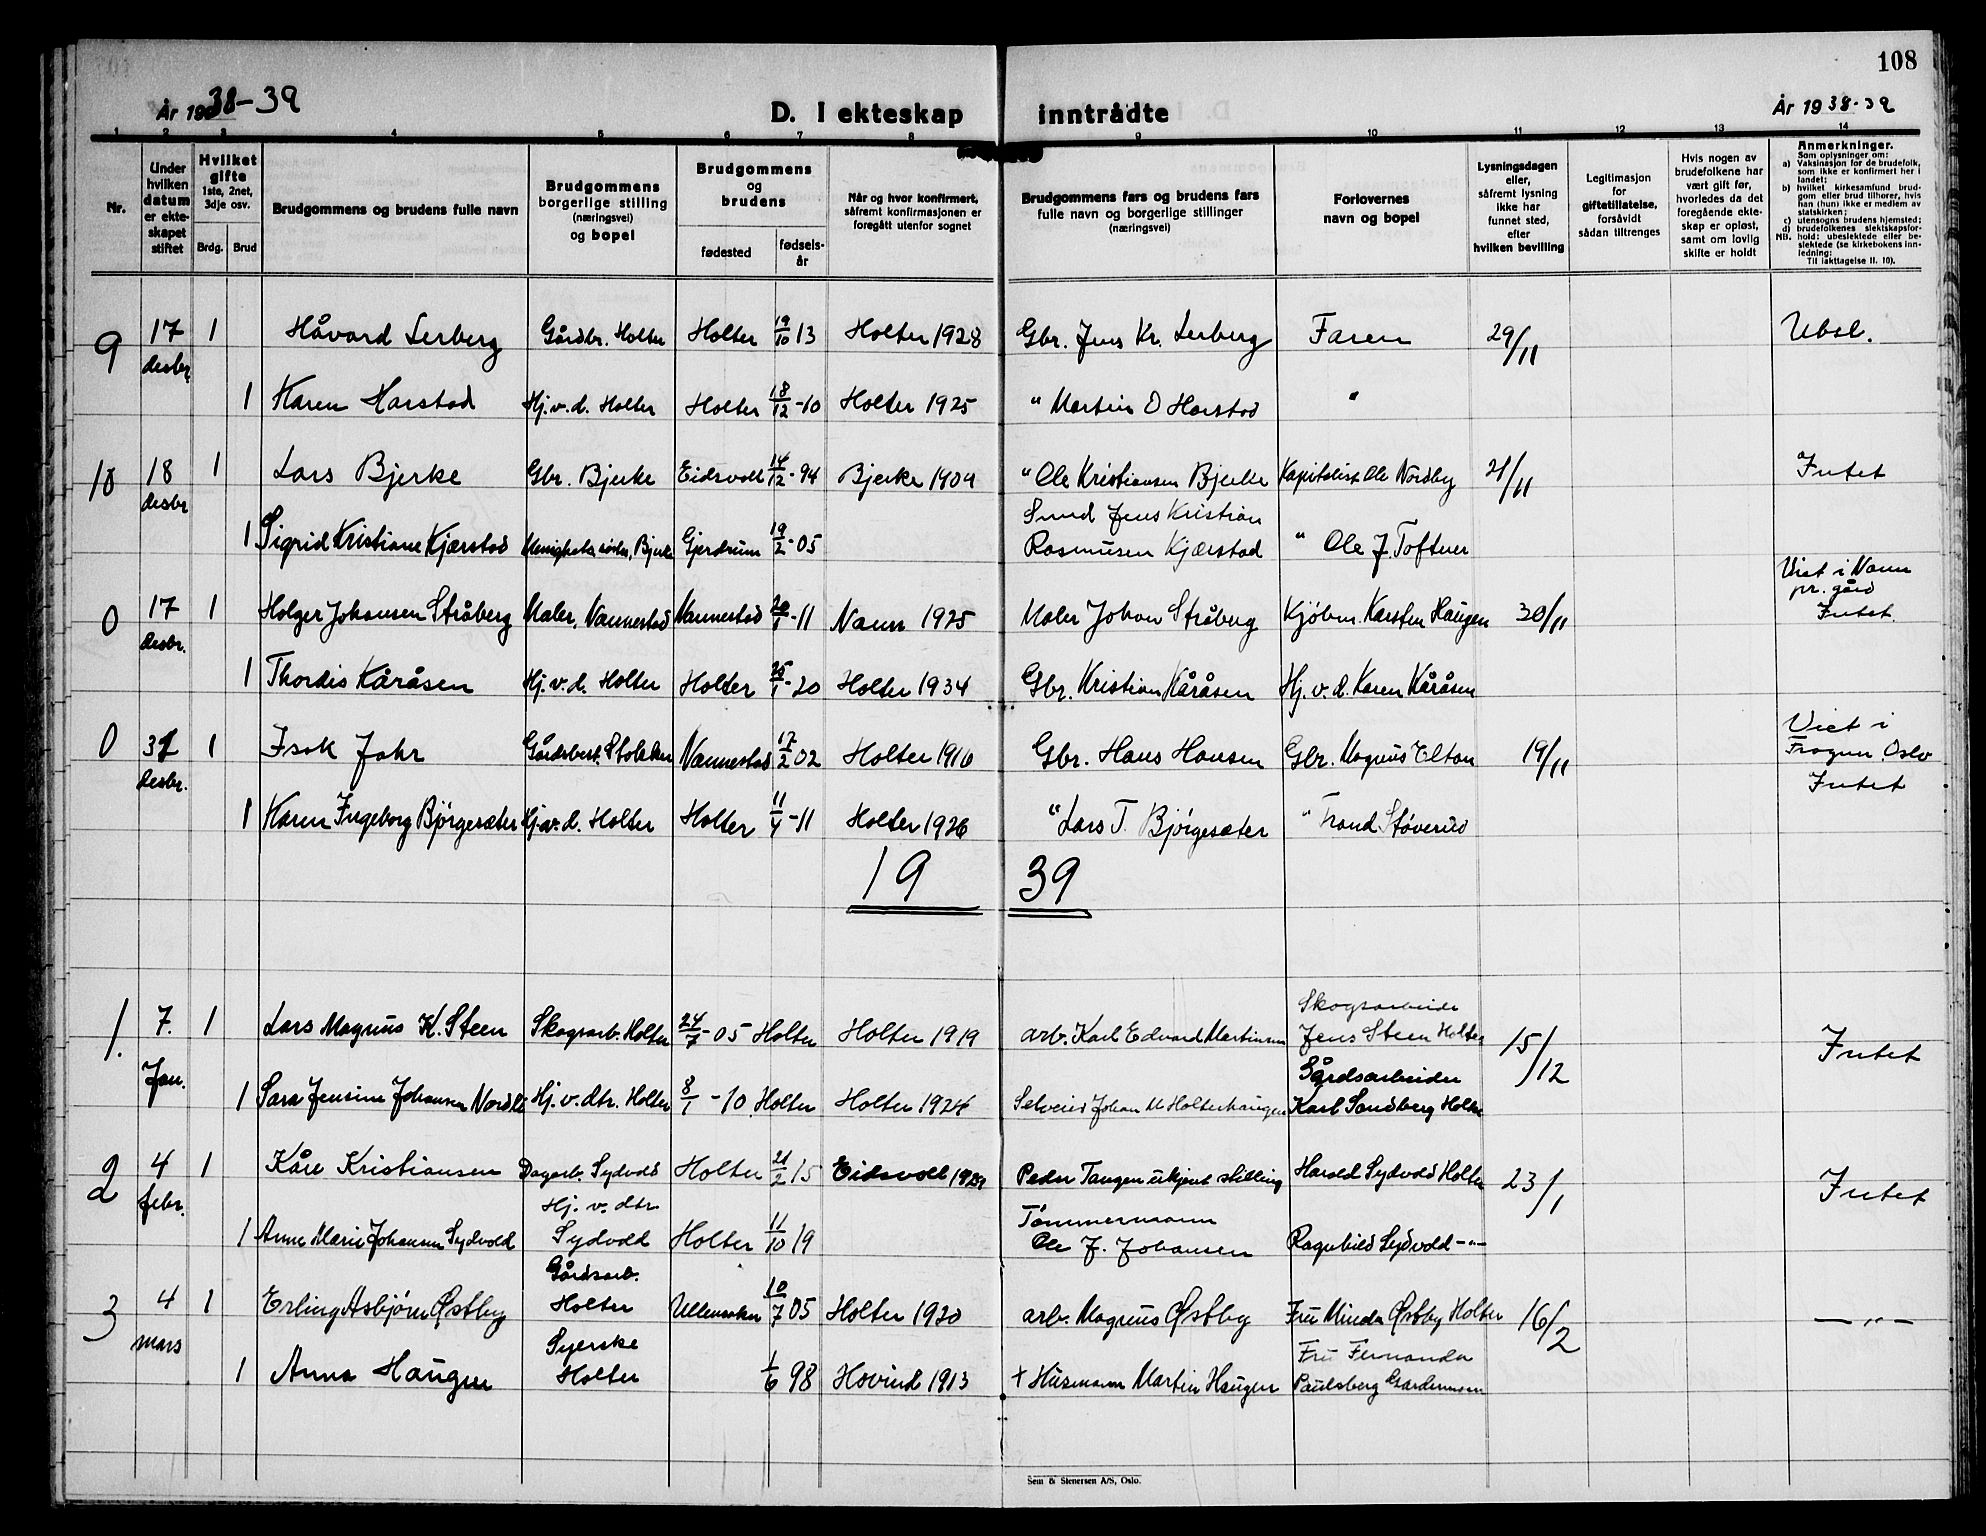 108
År 1938-39
D. I ekteskap inntrådte
År 1938-39
1 2 3 4 5 6 7 8 9 10 11 12 13 14
Nr.
Under hvilken datum er ekteskapet stiftet
Hvilket gifte 1ste, 2net, 3dje osv.
Brdg. Brud
Brudgommens og brudens fulle navn
Brudgommens borgerlige stilling (næringsvei) og bopel
Brudgommens og brudens
fødested
fødselsår
Når og hvor konfirmert, såfremt konfirmasjonen er foregått utenfor sognet
Brudgommens fars og brudens fars fulle navn og borgerlige stillinger (næringsvei)
Forlovernes navn og bopel
Lysningsdagen eller, såfremt lysning ikke har funnet sted, efter hvilken bevilling
Legitimasjon for giftetillatelse, forsåvidt sådan tiltrenges
Hvis nogen av brudefolkene har vært gift før, hvorledes da det foregående ekteskap er opløst, samt om lovlig skifte er holdt
Anmerkninger.
Som oplysninger om:
a) Vaksinasjon for de brudefolk, som ikke er konfirmert her i landet;
b) hvilket kirkesamfund brudgom eller brud tilhører, hvis han (hun) ikke er medlem av statskirken;
c) utensogns brudens hjemsted;
d) brudefolkenes slektskapsforhold: ubeslektede eller beslektede (se kirkebokens innledning:
NB. Til iakttagelse II. 10).
9 17 desbr 1 Håvard Lerberg Gårdbr. Holter Holter 19/10 13 Holter 1928 Gbr. Jens Kr. Lerberg Faren 29/11 Ubsl.
1 Karen Harstad Hj.v.d. Holter Holter 18/12-10 Holter 1925 " Martin O Harstad "
10 18 desbr 1 Lars Bjerke Gbr. Bjerke Eidsvoll 14/12-94 Bjerke 1909 " Ole Kristiansen Bjerke Kapitalist Ole Nordby 21/11 Intet
1 Sigrid Kristiane Kjærstad Menighetssøster, Bjerke Gjerdrum 19/2-05 Smed Jens Kristian Rasmusen Kjærstad " Ole J. Toftner
0 17 desbr. 1 Holger Johansen Stråberg Maler, Nannestad Nannestad 20/1-11 Nann 1925 Maler Johan Stråberg Kjøbm. Karsten Haugen 30/11 Viet i Nann pr. gård Intet.
1 Thordis Kåråsen Hj.v.d. Holter Holter 25/1-20 Holter 1934 Gbr. Kristian Kåråsen Hj.v.d. Karen Kåråsen
0 31 desbr. 1 Isak Jahr Gårdsbest. Nannestad 17/2 02 Holter 1916 Gbr. Hans Hansen Gbr. Magnus Elton 19/11 Viet i Frogner. Oslo Intet
1 Karen Ingeborg Bjørgesæter Hj.v.d. Holter Holter 11/4-11 Holter 1926 " Lars T. Bjørgesæter " Trond Støverud
19 39
1. 7. Jan. 1 Lars Magnus K. Steen Skogsarb. Holter 24/7-05 Holter Holter 1919 Arb. Karl Edvard Martinsen Skogsarbeider Jens Steen Holter 15/12 Intet
1 Sara Jensine Johansen Nordli Hj.v.dtr. Holter 8/1-10 Holter Holter 1924 Selveier Johan M Holterhaugen Gårdsarbeider Karl Sandberg Holter
2 4 febr. 1 Kåre Kristiansen Dagarb. Sydvold Holter 21/2 15 Eidsvoll 1929 Peder Tangen ukjent stilling Harald Sydvold Holter 23/1 Intet
1 Anne Marie Johansen Sydvold Hj. v. dtr Sydvold Holter 11/10 19 Tømmermann Ole J. Johansen Ragnhild Sydvold -"-
3 4 mars 1 Erling Asbjørn Østby Gårdsarb. Holter Ullensaker 10/7 05 Holter 1920 Arb. Magnus Østby Fru Minda Østby Holter 16/2 -"-
1 Anna Haugen Syerske Holter 1/6 98 Hovind 1913 + Husmann Martin Haugen Fru Fernanda Paulsberg Gardermoen
Sem & Stenersen A/S, Oslo.